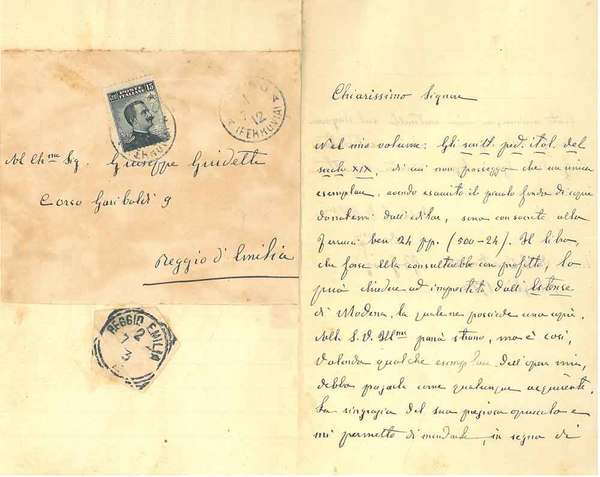 15
12
(FERROVIA)
All Chmo Sig. Giuseppe Guidetti
Corso Garibaldi 9
Reggio d'Emilia
REGGIO EMILIA
2
7
3
Chiarissimo Signore
Nel mio volume: Gli scritt. ped. ital. del
secolo XIX, di cui non posseggo che un unico
esemplare, avendo esaurito il piccolo fondo di copie
donatemi dall'editore, sono consacrate alla
Ferrucci ben 24 pp. (500-24). Il libro,
che forse Ella consulterebbe con profitto, lo
può chiedere ad imprestito dall'Estense
di Modena, la quale ne possiede una copia.
Alla S. V. Illma parrà strano, ma è così,
volendo qualche esemplare dell'opera mia,
debbo pagarla come qualunque acquirente.
La ringrazio del suo prezioso opuscolo e
mi permetto di mandarle, in segno di